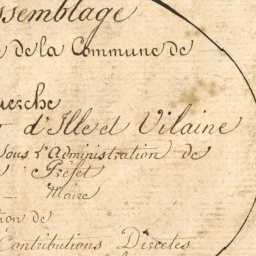 ssemblage
de la Commune de
uerche
d'Ille et Vilaine
sous l'Administration de
Préfet
Maire
ion de
Contributions Directes